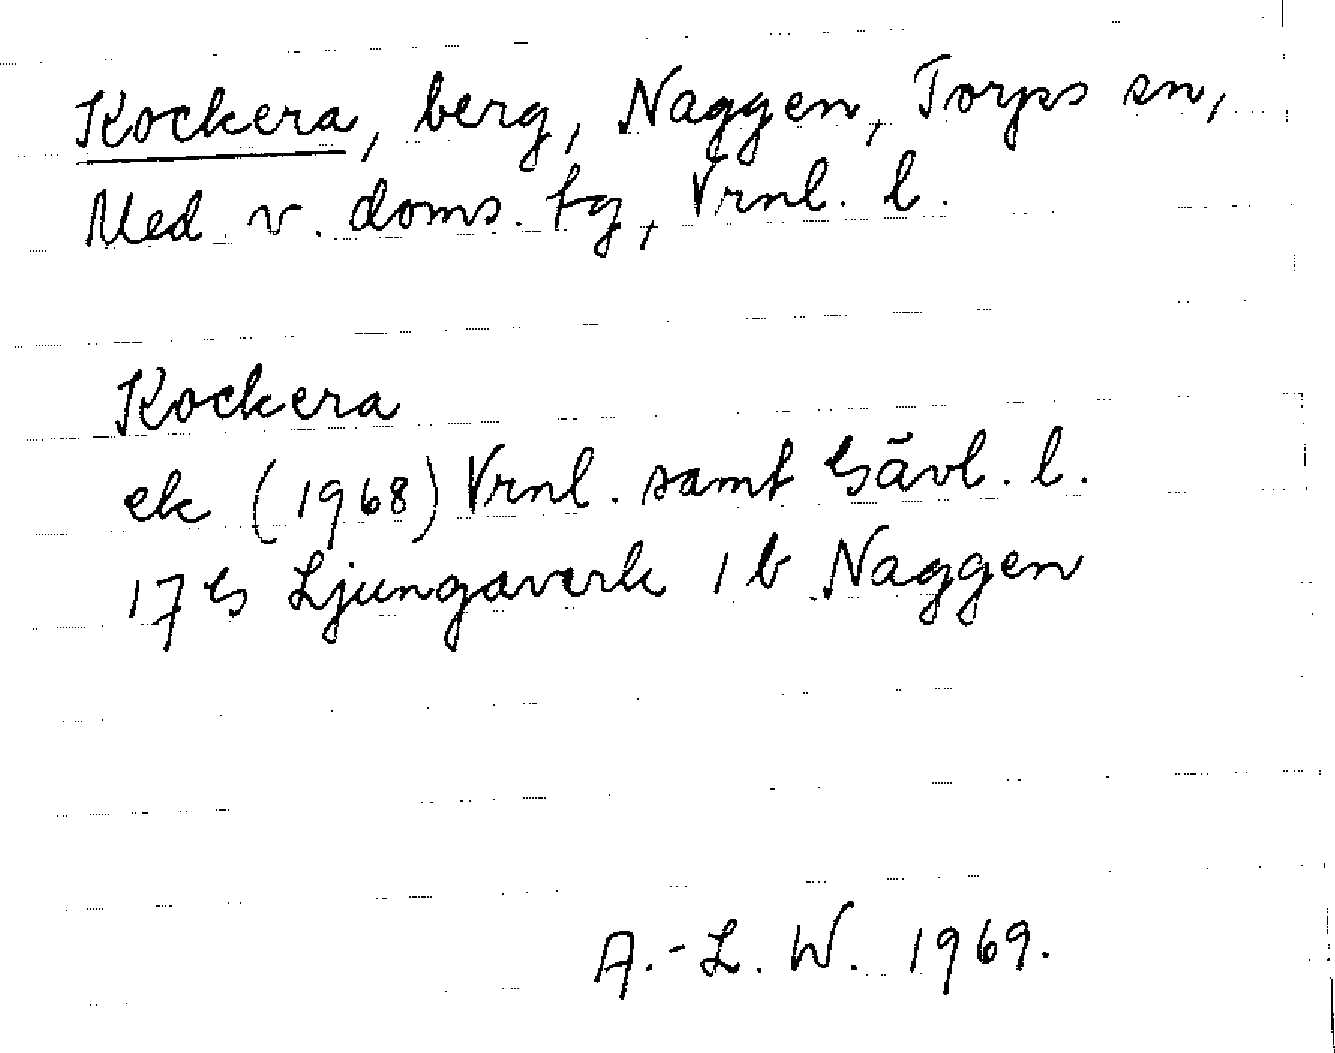 Kockera, berg, Naggen, Torps sn,
Med v. doms. tg, Vrnl. l.
Kockera
ek (1968) Vrnl. samt Gävl. l.
17 G Ljungaverk 1 b Naggen
A.-L. W. 1969.